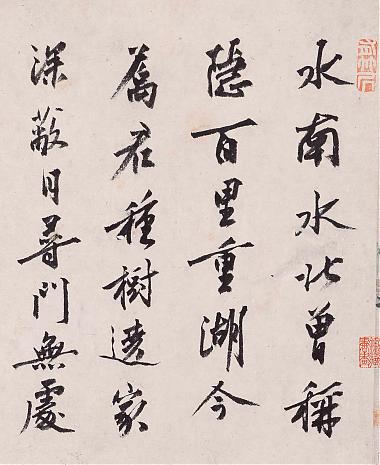 水南水北曾稱
隱百里重湖今
屬君種樹遶家
深蔽日尋門無處